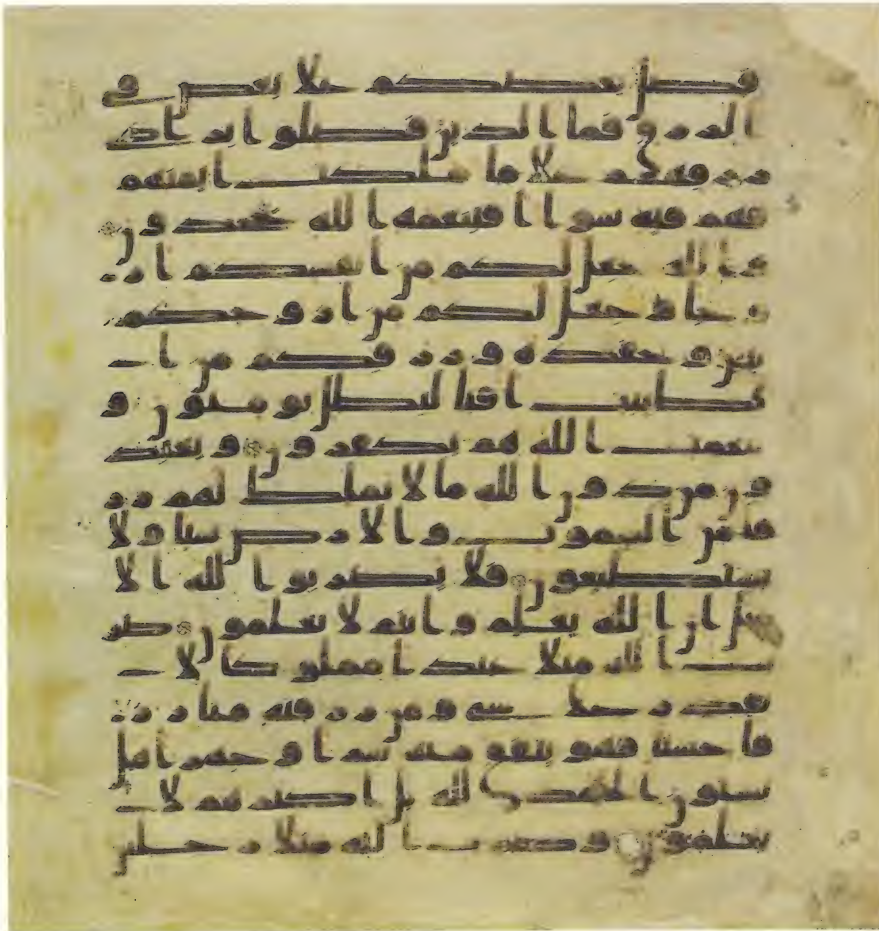 فضل بعضكم على بعض في
الرزق فما الذين فضلوا برادي
رزقهم على ما ملكت ايمنهم
فهم فيه سوا افبنعمة الله يجحدون
والله جعل لكم من انفسكم از
وجا وجعل لكم من ازوجكم
بنين وحفدة ورزقكم من ا
لطيبت افبالبطل يومنون و
بنعمت الله هم يكفرون ويعبد
ون من دون الله ما لا يملك لهم رز
قا من السموت والارض شيا ولا
يستطيعون فلا تضربوا لله الا
مثل ان الله يعلم وانتم لا تعلمون ضر
ب الله مثلا عبدا مملوكا لا
يقدر على شي ومن رزقنه منا رز
قا حسنا فهو ينفق منه سرا وجهرا هل
يستون الحمد لله بل اكثرهم لا
يعلمون وضرب الله مثلا رجلين